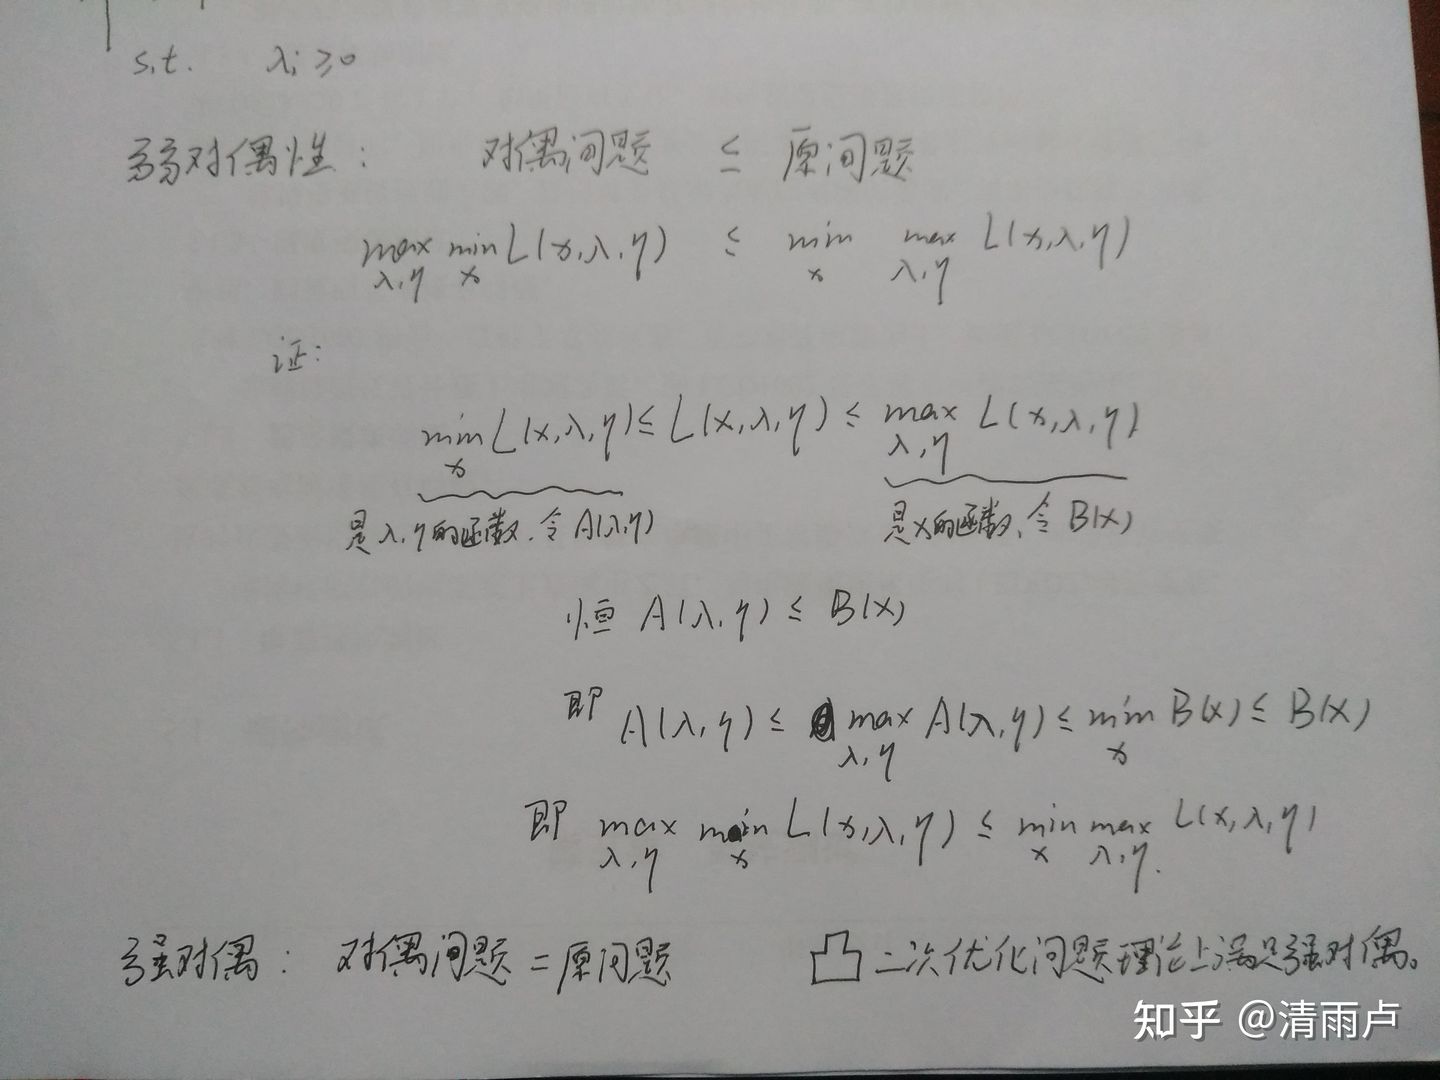 s.t. λi ≥0
弱对偶性: 对偶问题 ≤ 原问题
max min L(x,λ,η) ≤ min max L(x,λ,η)
λ,η x x λ,η
证:
min L(x,λ,η) ≤ L(x,λ,η) ≤ max L(x,λ,η)
x λ,η
是λ,η的函数,令A(λ,η) 是x的函数,令B(x)
恒 A(λ,η) ≤ B(x)
即 A(λ,η) ≤ max A(λ,η) ≤ min B(x) ≤ B(x)
λ,η x
即 max min L(x,λ,η) ≤ min max L(x,λ,η)
λ,η x x λ,η.
强对偶: 对偶问题 = 原问题 凸二次优化问题理论上满足强对偶。
知乎 @清雨卢